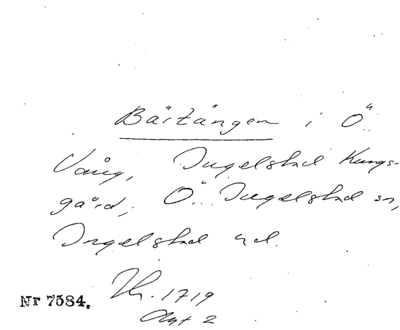 Bärzängen i Ö.
Vång, Ingelstad Kungs-
gård, Ö. Ingelstad sn,
Ingelstad hd.
Nr 7584. 1719
Akt 2